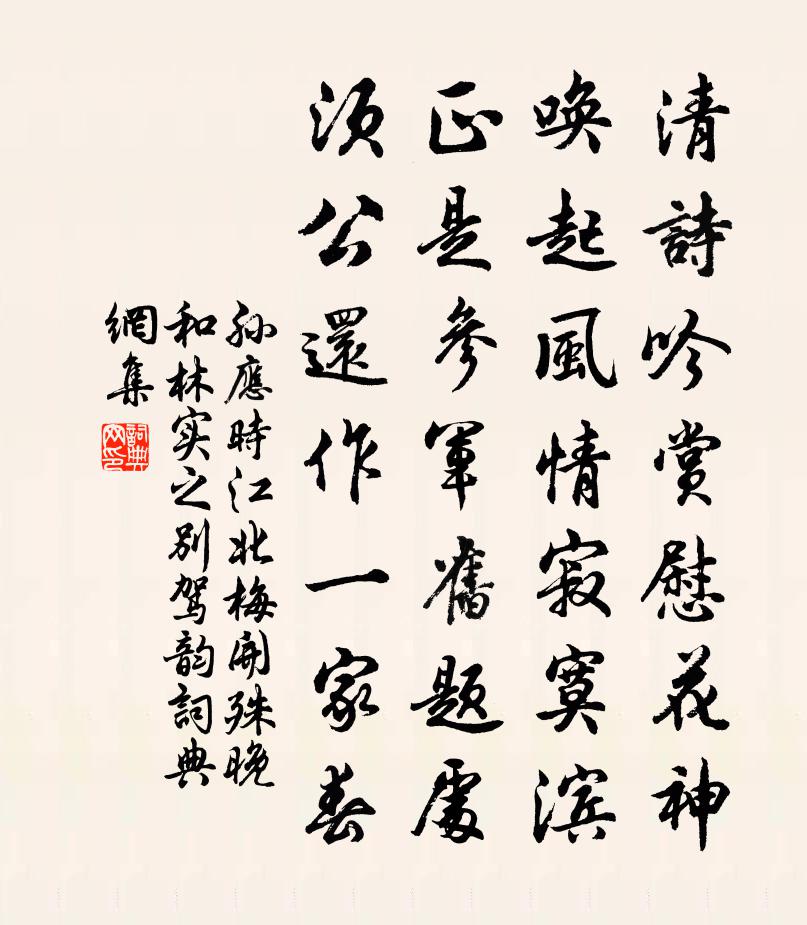 清詩吟賞慰花神
喚起風情寂寞滨
正是參軍舊题處
須公還作一家春
孙應時江北梅開殊晚
和林实之别驾韵詞典
網集
詞典
网印